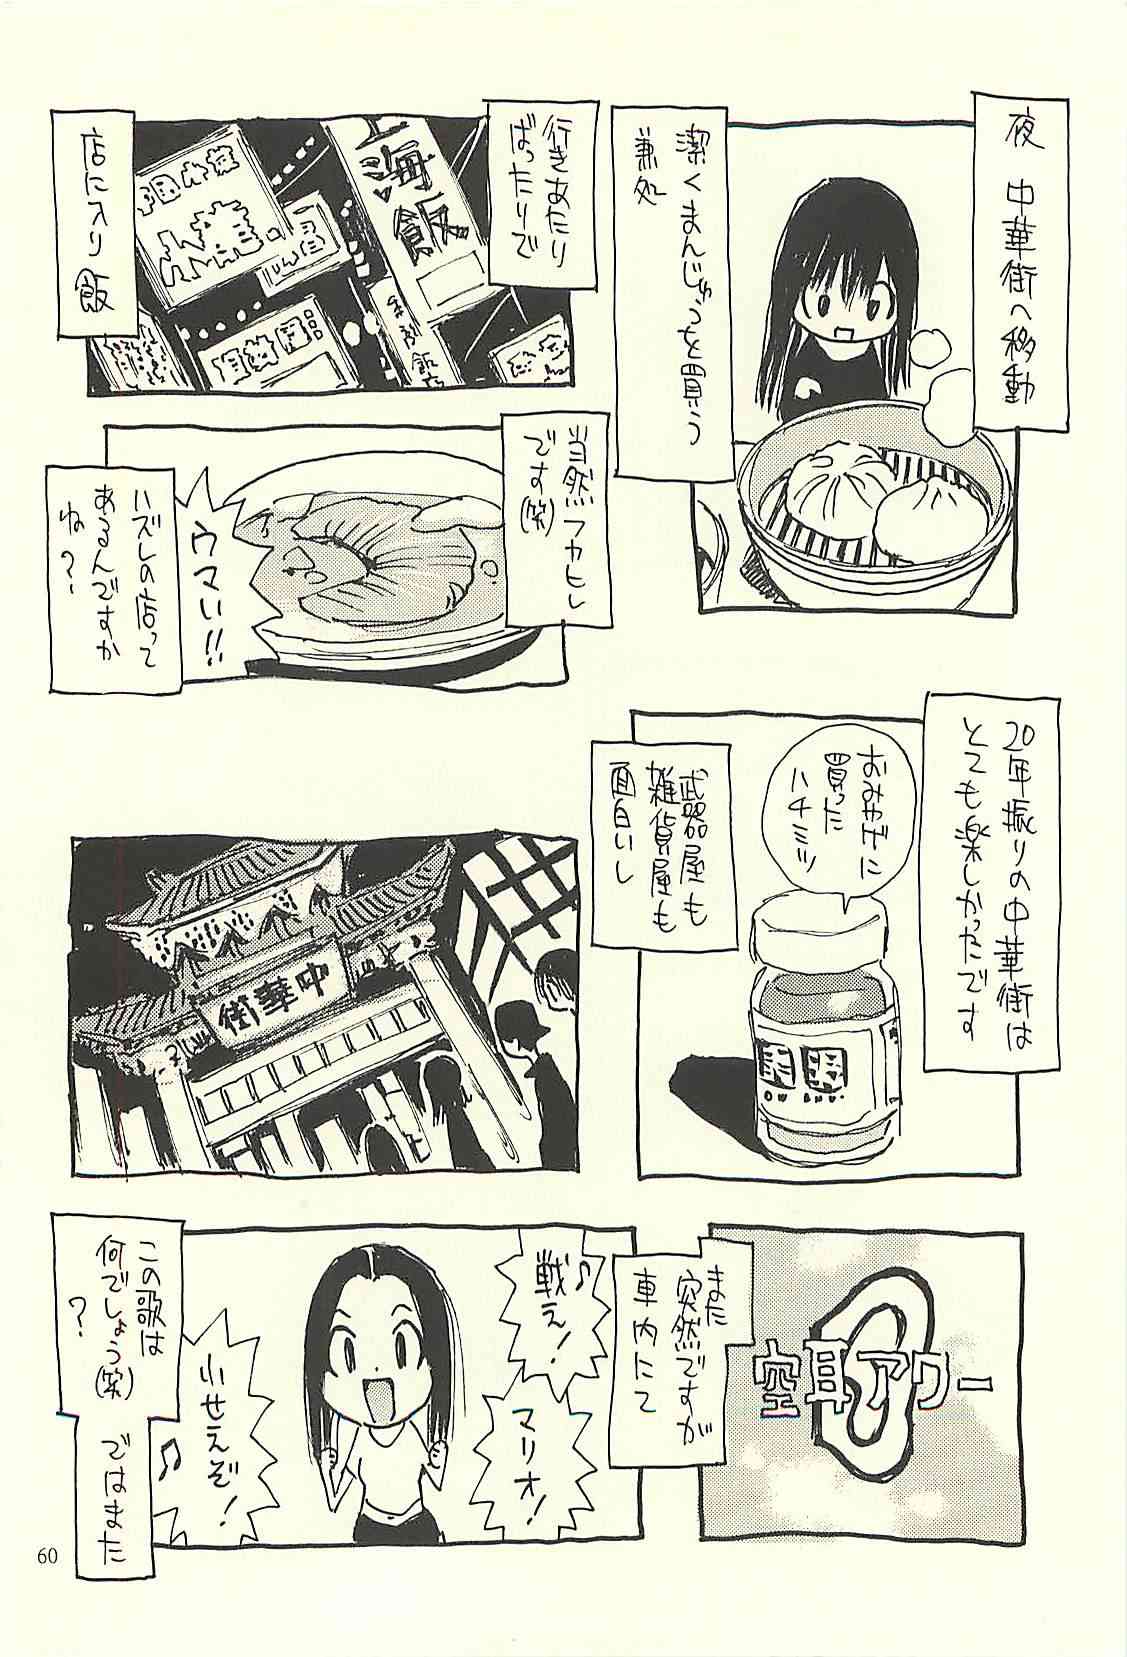 夜 中華街へ移動
潔くまんじゅうを買う
兼処
行きあたり
ばったりで
店に入り 飯
海飯
当然フカヒレ
です(笑)
ウマい!!
ハズレの店って
あるんですか
ね?
20年振りの中華街は
とても楽しかったです
おみやげに
買った
ハチミツ
武器屋も
雑貨屋も
面白いし
中華街
空耳アワー
また
突然ですが
車内にて
戦え!
マリオ!
小せえぞ!
この歌は
何でしょう(笑)
?
ではまた
60